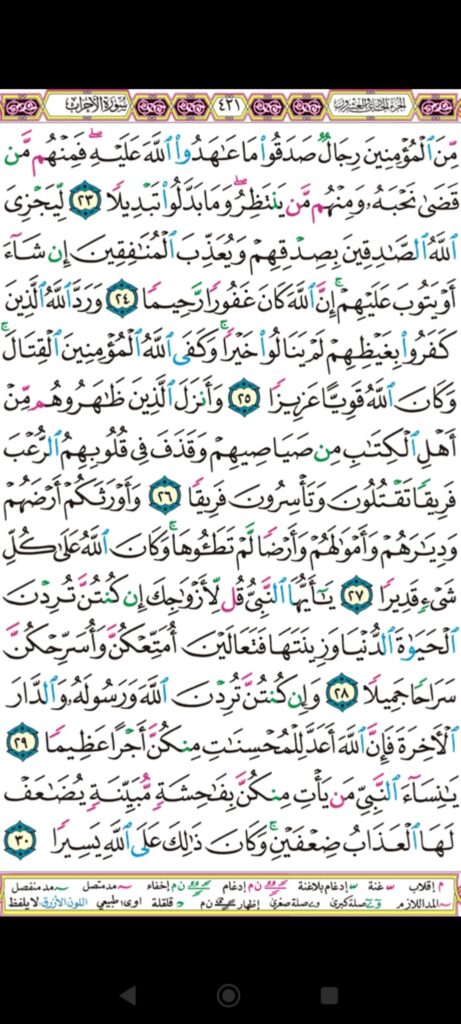 الجزء الحادي والعشرون ٤٢١ سورة الأحزاب
مِّنَ ٱلْمُؤْمِنِينَ رِجَالٌ صَدَقُوا۟ مَا عَٰهَدُوا۟ ٱللَّهَ عَلَيْهِ ۖ فَمِنْهُم مَّن
قَضَىٰ نَحْبَهُۥ وَمِنْهُم مَّن يَنتَظِرُ ۖ وَمَا بَدَّلُوا۟ تَبْدِيلًا ٢٣ لِّيَجْزِىَ
ٱللَّهُ ٱلصَّٰدِقِينَ بِصِدْقِهِمْ وَيُعَذِّبَ ٱلْمُنَٰفِقِينَ إِن شَآءَ
أَوْ يَتُوبَ عَلَيْهِمْ ۚ إِنَّ ٱللَّهَ كَانَ غَفُورًا رَّحِيمًا ٢٤ وَرَدَّ ٱللَّهُ ٱلَّذِينَ
كَفَرُوا۟ بِغَيْظِهِمْ لَمْ يَنَالُوا۟ خَيْرًا ۚ وَكَفَى ٱللَّهُ ٱلْمُؤْمِنِينَ ٱلْقِتَالَ ۚ
وَكَانَ ٱللَّهُ قَوِيًّا عَزِيزًا ٢٥ وَأَنزَلَ ٱلَّذِينَ ظَٰهَرُوهُم مِّنْ
أَهْلِ ٱلْكِتَٰبِ مِن صَيَاصِيهِمْ وَقَذَفَ فِى قُلُوبِهِمُ ٱلرُّعْبَ
فَرِيقًا تَقْتُلُونَ وَتَأْسِرُونَ فَرِيقًا ٢٦ وَأَوْرَثَكُمْ أَرْضَهُمْ
وَدِيَٰرَهُمْ وَأَمْوَٰلَهُمْ وَأَرْضًا لَّمْ تَطَـُٔوهَا ۚ وَكَانَ ٱللَّهُ عَلَىٰ كُلِّ
شَىْءٍ قَدِيرًا ٢٧ يَٰٓأَيُّهَا ٱلنَّبِىُّ قُل لِّأَزْوَٰجِكَ إِن كُنتُنَّ تُرِدْنَ
ٱلْحَيَوٰةَ ٱلدُّنْيَا وَزِينَتَهَا فَتَعَالَيْنَ أُمَتِّعْكُنَّ وَأُسَرِّحْكُنَّ
سَرَاحًا جَمِيلًا ٢٨ وَإِن كُنتُنَّ تُرِدْنَ ٱللَّهَ وَرَسُولَهُۥ وَٱلدَّارَ
ٱلْـَٔاخِرَةَ فَإِنَّ ٱللَّهَ أَعَدَّ لِلْمُحْسِنَٰتِ مِنكُنَّ أَجْرًا عَظِيمًا ٢٩
يَٰنِسَآءَ ٱلنَّبِىِّ مَن يَأْتِ مِنكُنَّ بِفَٰحِشَةٍ مُّبَيِّنَةٍ يُضَٰعَفْ
لَهَا ٱلْعَذَابُ ضِعْفَيْنِ ۚ وَكَانَ ذَٰلِكَ عَلَى ٱللَّهِ يَسِيرًا ٣٠
م إقلاب غنة إدغام بلاغنة ن م إدغام ن م إخفاء مد متصل مد منفصل
المد اللازم صلة كبرى صلة صغرى إظهار ن م قلقلة اوى طبيعي اللون الأزرق: لا يلفظ